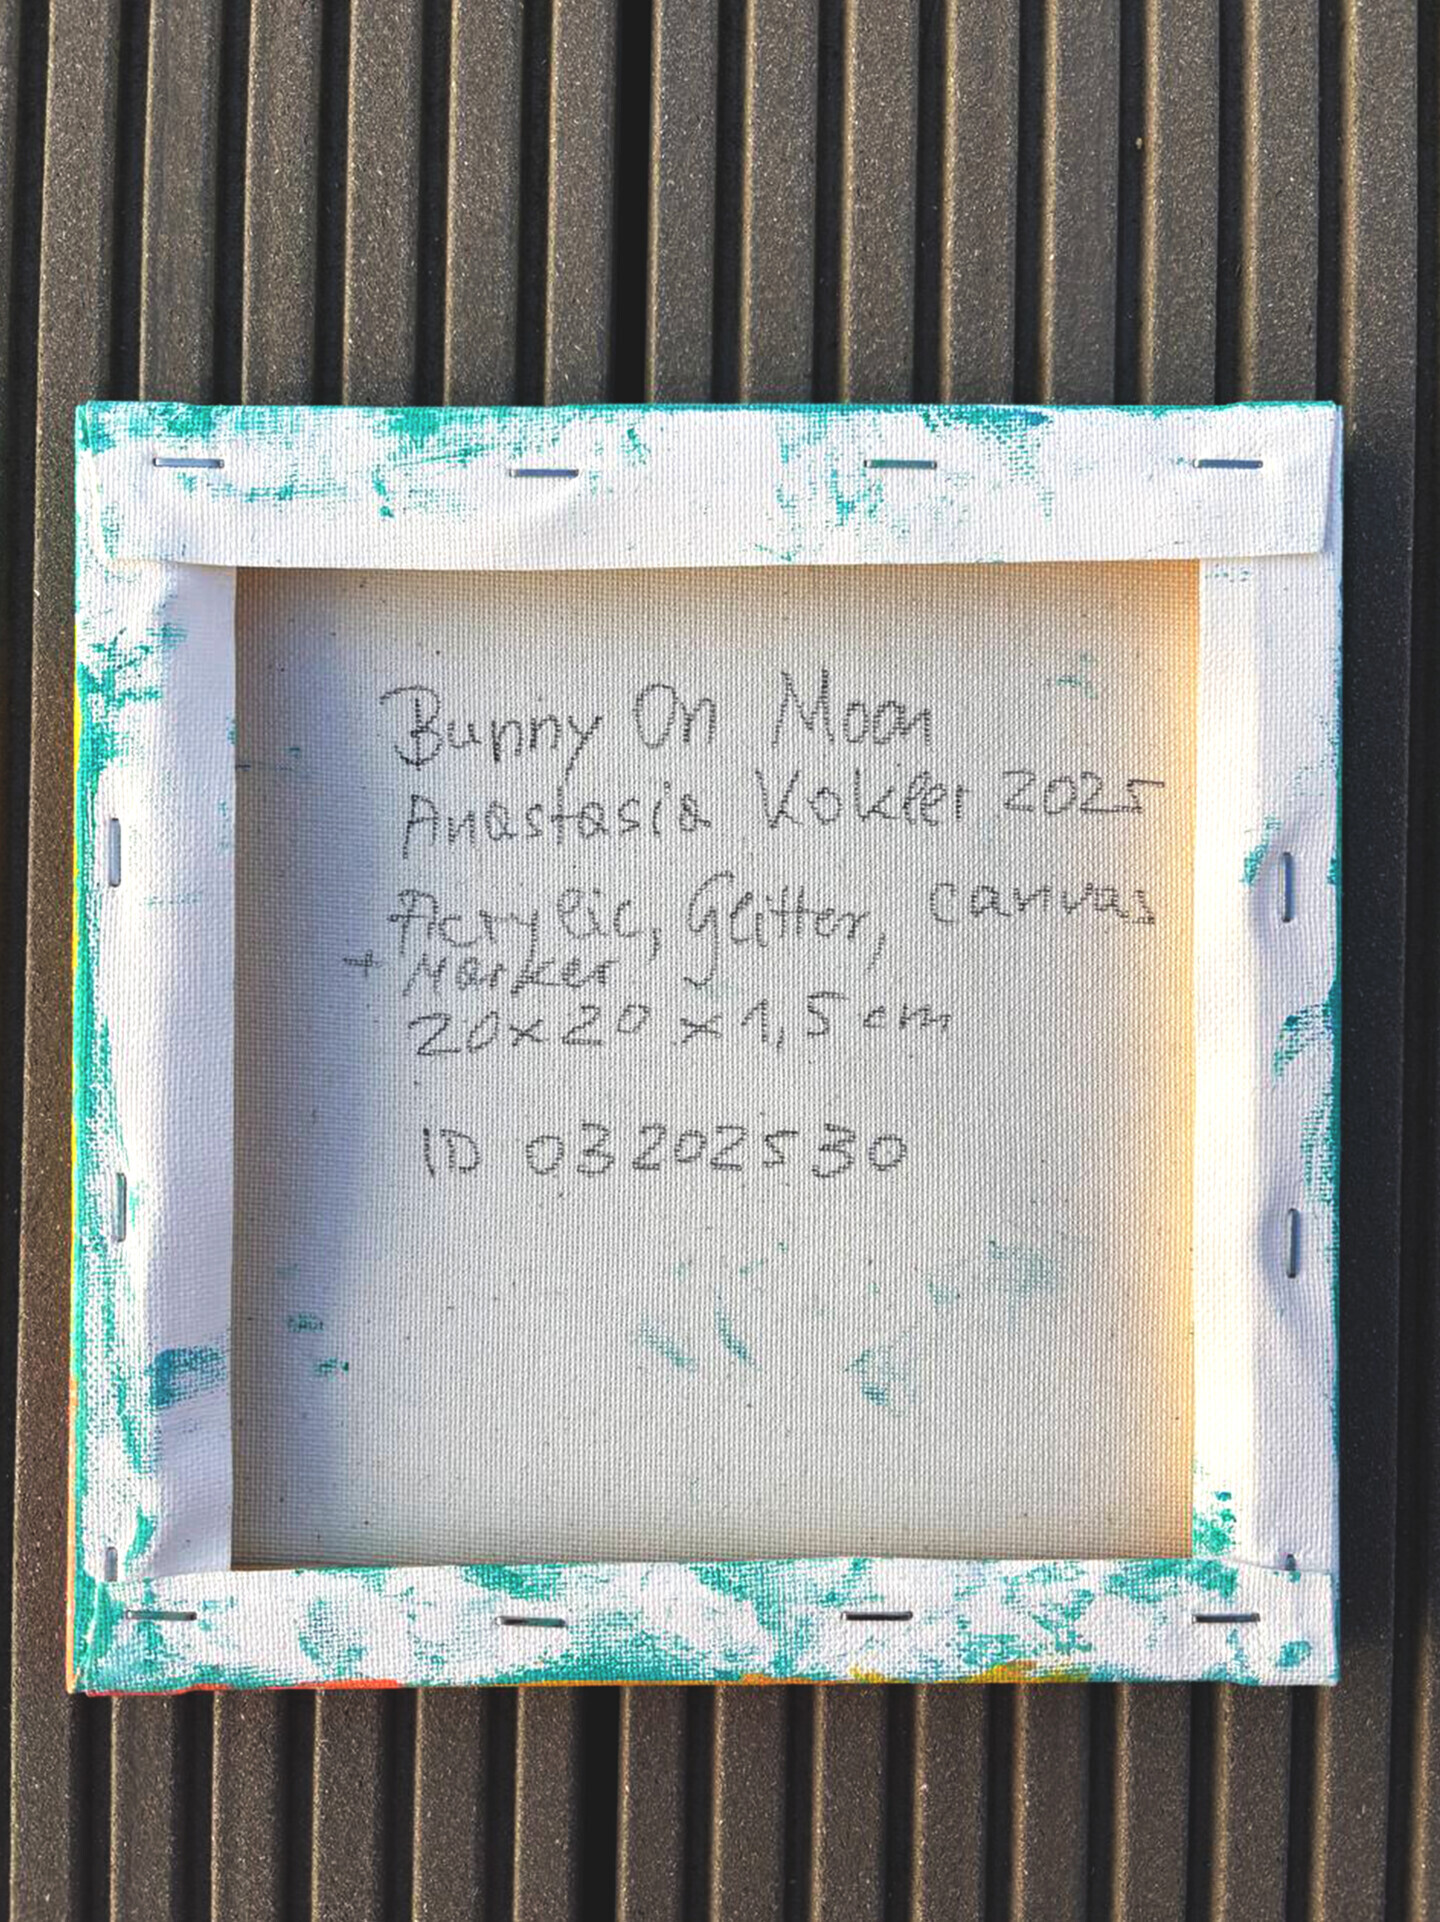 Bunny On Moon
Anastasia Kokler 2025
Acrylic, Glitter, canvas
+ Marker
20x20 x 1,5 cm
ID 03202530